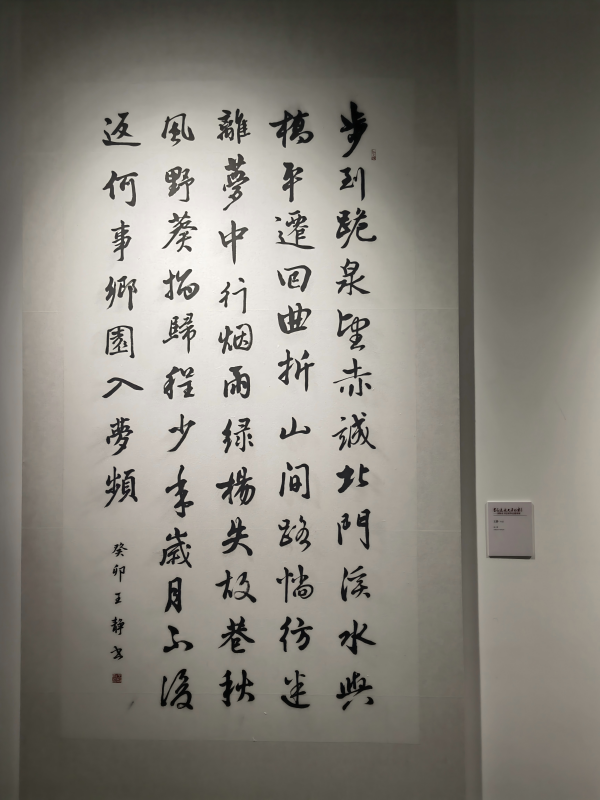 步到跪泉望赤誠北門溪水與
橋平遷回曲折山间路惝彷迷
離夢中行烟雨緑楊失故巷秋
風野葵歸程少年歲月不復
返何事鄉園入夢頻
癸卯王静书